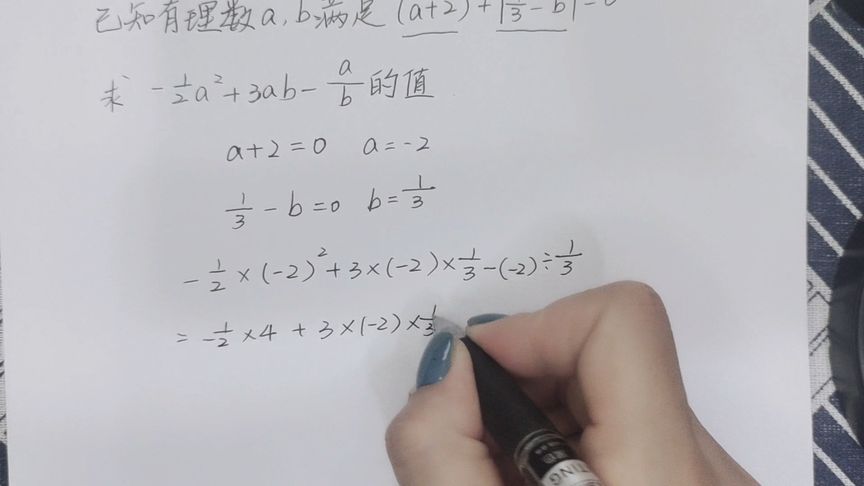 已知有理数a,b满足 (a+2)+|1/3-b|=0
求 -1/2a²+3ab-a/b的值
a+2=0 a=-2
1/3-b=0 b=1/3
-1/2×(-2)²+3×(-2)×1/3-(-2)÷1/3
=-1/2×4+3×(-2)×1/3
TING